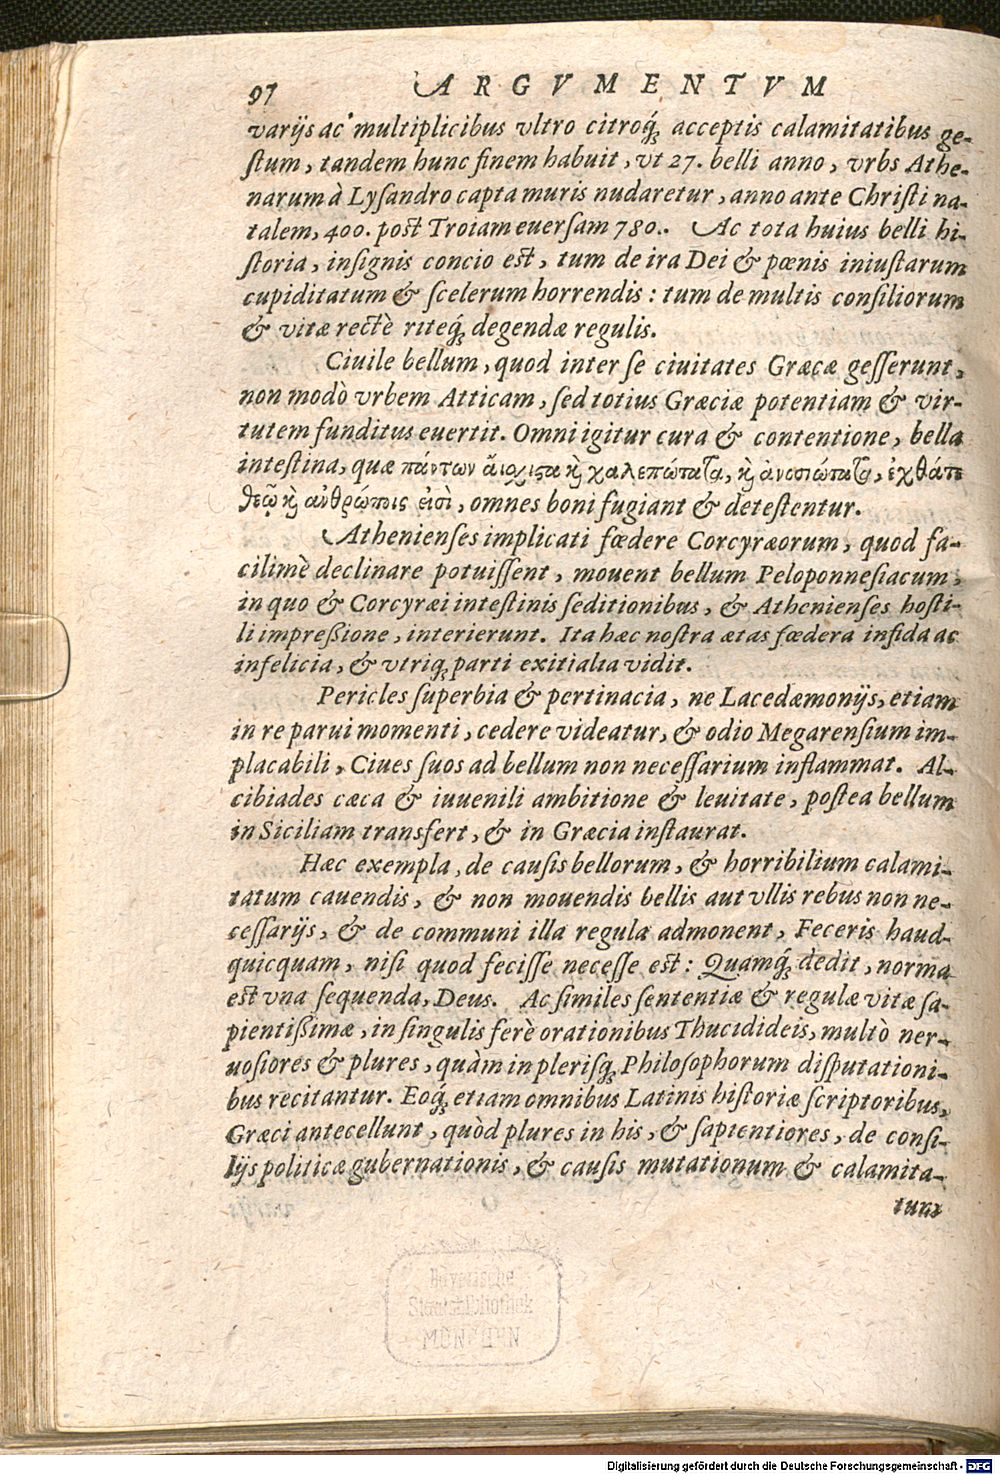 97 ARGVMENTVM
varijs ac multiplicibus vltro citroq́; acceptis calamitatibus ge-
ſtum, tandem hunc finem habuit, vt 27. belli anno, vrbs Athe-
narum à Lyſandro capta muris nudaretur, anno ante Chriſti na-
talem, 400. poſt Troiam euerſam 780.. Ac tota huius belli hi-
ſtoria, inſignis concio eſt, tum de ira Dei & pœnis iniuſtarum
cupiditatum & ſcelerum horrendis: tum de multis conſiliorum
& vitæ rectè riteq́; degendæ regulis.
Ciuile bellum, quod inter ſe ciuitates Græcæ geſſerunt,
non modò vrbem Atticam, ſed totius Græciæ potentiam & vir-
tutem funditus euertit. Omni igitur cura & contentione, bella
inteſtina, quæ πάντων ἄιχιστα καὶ χαλεπώτατα, καὶ ἀνοσιώτατα, ἐχθάτε
θεῷ καὶ ἀνθρώποις εἰσὶ, omnes boni fugiant & deteſtentur.
Athenienſes implicati fœdere Corcyræorum, quod fa-
cilimè declinare potuiſſent, mouent bellum Peloponneſiacum,
in quo & Corcyræi inteſtinis ſeditionibus, & Athenienſes hoſti-
li impreßione, interierunt. Ita hæc noſtra ætas fœdera infida ac
infelicia, & vtriq; parti exitialia vidit.
Pericles ſuperbia & pertinacia, ne Lacedæmonijs, etiam
in re parui momenti, cedere videatur, & odio Megarenſium im-
placabili, Ciues ſuos ad bellum non neceſſarium inflammat. Al-
cibiades cæca & iuuenili ambitione & leuitate, poſtea bellum
in Siciliam transfert, & in Græcia inſtaurat.
Hæc exempla, de cauſis bellorum, & horribilium calami-
tatum cauendis, & non mouendis bellis aut vllis rebus non ne-
ceſſarijs, & de communi illa regula admonent, Feceris haud-
quicquam, niſi quod feciſſe neceſſe eſt: Quamq́; dedit, norma
eſt vna ſequenda, Deus. Ac ſimiles ſententiæ & regulæ vitæ ſa-
pientißimæ, in ſingulis ferè orationibus Thucidideis, multò ner-
uoſiores & plures, quàm in pleriſq; Philoſophorum diſputationi-
bus recitantur. Eoq́; etiam omnibus Latinis hiſtoriæ ſcriptoribus,
Græci antecellunt, quòd plures in his, & ſapientiores, de conſi-
lijs politicæ gubernationis, & cauſis mutationum & calamita-
tum
Bayerische
Staatsbibliothek
MÜNCHEN
Digitalisierung gefördert durch die Deutsche Forschungsgemeinschaft - DFG